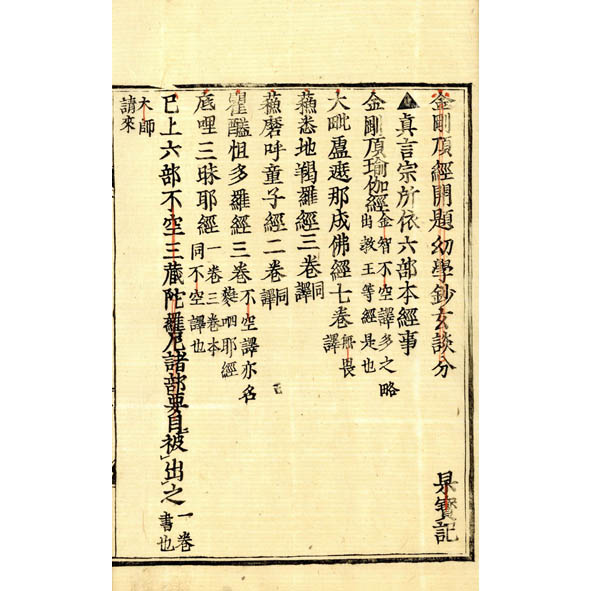 金剛頂經開題幼學鈔玄談分 杲寳記
▲真言宗所依六部本經事
金剛頂瑜伽經金智不空譯多之略出教王等經是也
大毗盧遮那成佛經七卷無畏譯
蘓悉地羯羅經三卷同譯
蘓磨呼童子經二卷同譯
瞿醯怛多羅經三卷不空譯亦名蕤呬耶經
底哩三昧耶經一卷三卷本同不空譯也
已上六部不空三藏陀羅尼諸部要目被出之一卷書也
大師請來